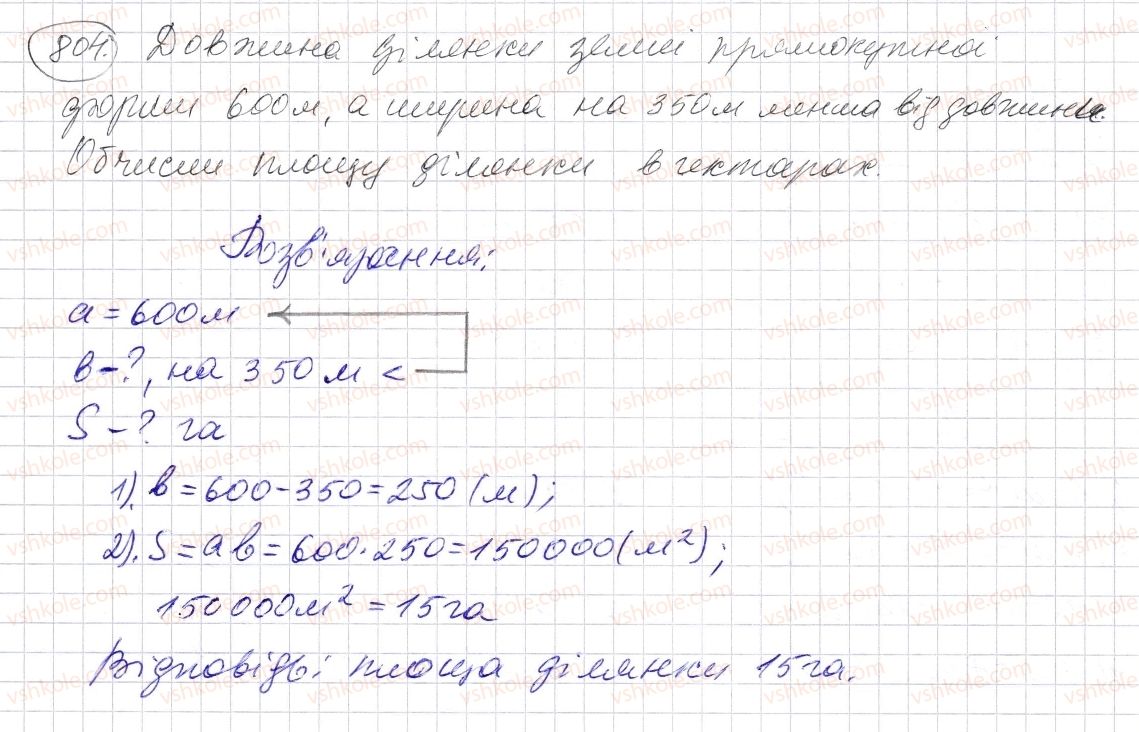 804. Довжина ділянки землі прямокутної
форми 600м, а ширина на 350м менша від довжини.
Обчисли площу ділянки в гектарах.
Розв'язання:
a = 600м
в - ?, на 350 м <
S - ? га
1). в = 600 - 350 = 250 (м);
2). S = aв = 600 · 250 = 150000 (м²);
150000м² = 15га
Відповідь: площа ділянки 15га.